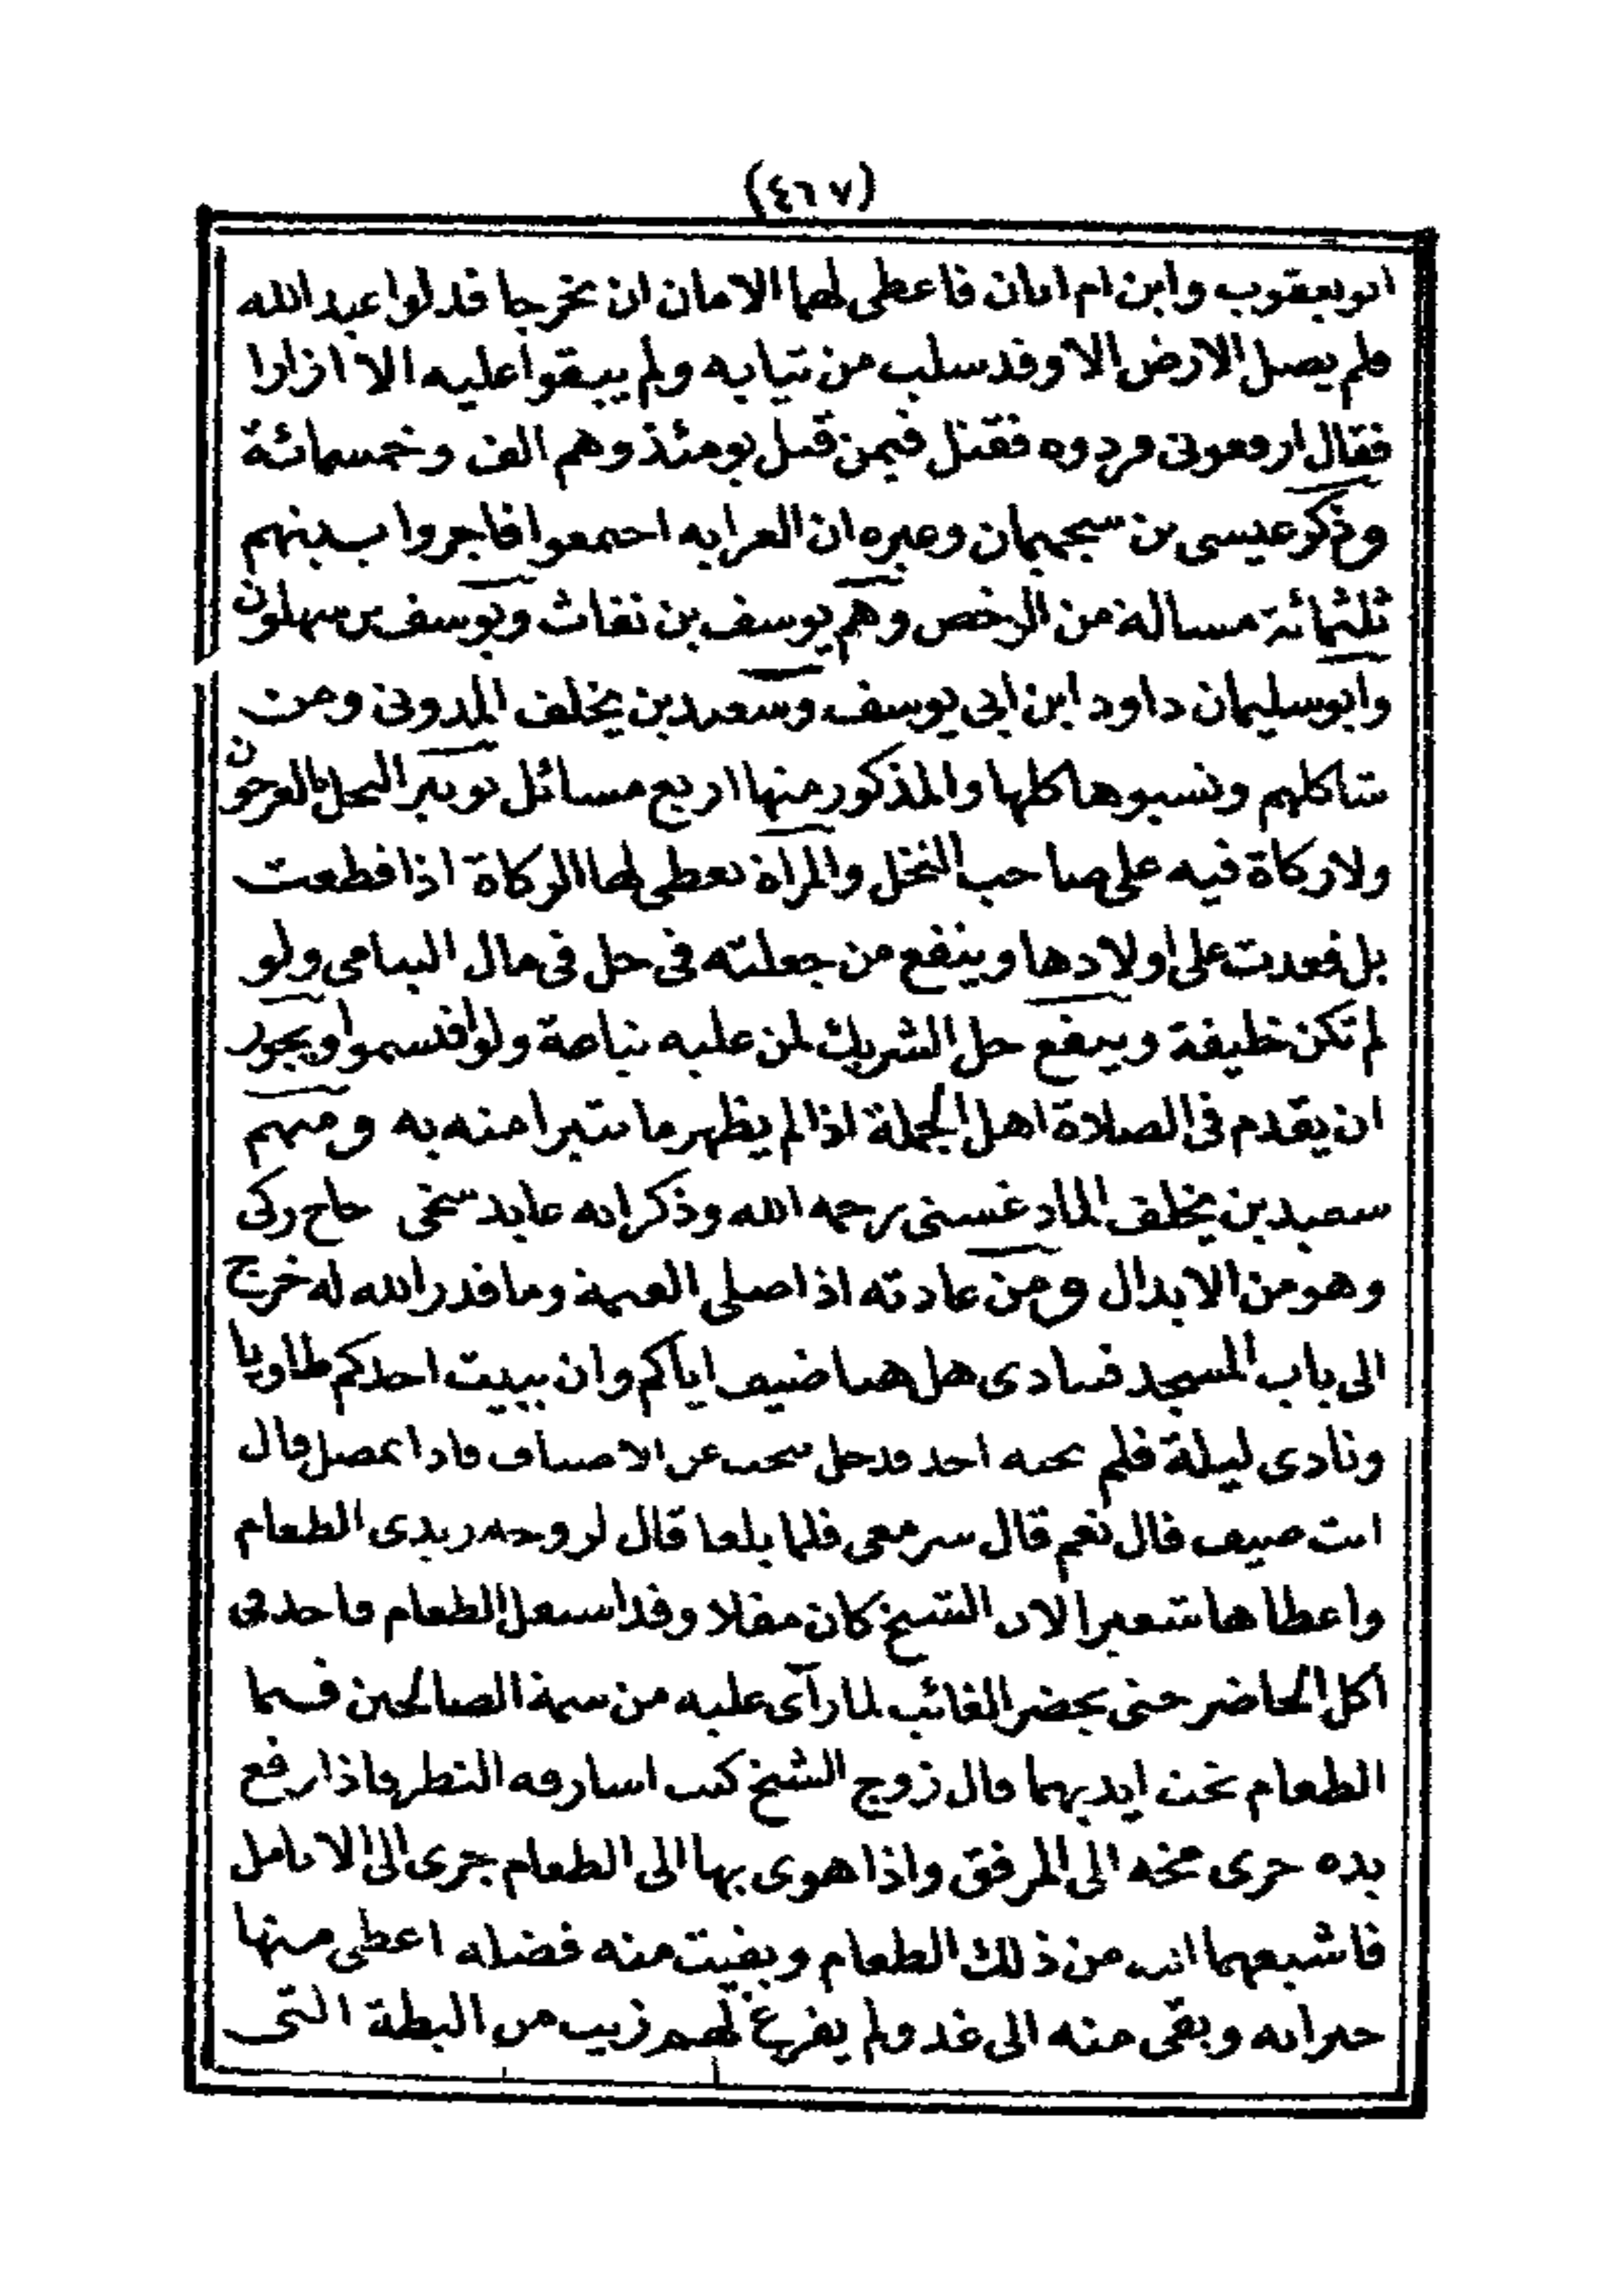 (٤٦٧)
ابو يعقوب وابن ام ابان فاعطى لهما الامان ان يخرجا فدلوا عبد الله
فلم يصل الارض الا وقد سلب من ثيابه ولم يبقوا عليه الا ازارا
فقال ارفعونى فردوه فقتل فيمن قتل يومئذ وهم الف وخمسمائة
وذكر عيسى بن سجميمان وغيره ان العزابه اجتمعوا فاجروا بينهم
ثلثمائة مسالة من الرخص وهم يوسف بن نفاث ويوسف بن سهلون
وابو سليمان داود ابن ابى يوسف وسعيد بن يخلف المدونى ومن
شاكلهم ونسبوها كلها والمذكور منها اربع مسائل توبير النحل بالعرجون
ولا زكاة فيه على صاحب النخل والمراة تعطى لها الزكاة اذا قطعت
بل قعدت على اولادها وينفع من جعلته فى حل فى مال اليتامى ولو
لم تكن خليفة وينفع حل الشريك لمن عليه تباعة ولو اقتسموا ويجوز
ان يقدم فى الصلاة اهل الجملة اذا لم يظهر ما تتبرا منه به ومنهم
سعيد بن يخلف المادغسنى رحمه الله وذكر انه عابد سخى حاج زكى
وهو من الابدال ومن عادته اذا صلى العتمة وما قدر الله له خرج
الى باب المسجد فنادى هل هنا ضيف اياكم وان يبيت احدكم طاويا
ونادى ليلة فلم يجبه احد فدخل يبحث عن الاضياف فاذا بمصل قال
انت ضيف قال نعم قال سر معى فلما بلغا قال لزوجه زيدى الطعام
واعطاها شعيرا لان الشيخ كان مقلا وقد استعمل الطعام فاخذ فى
اكل الحاضر حتى يحضر الغائب لما رآى عليه من سمة الصالحين فنما
الطعام تحت ايديهما قال زوج الشيخ كنت اسارقه النظر فاذا رفع
يده جرى مخه الى المرفق واذا هوى بها الى الطعام جرى الى الانامل
فاشبعهما الله من ذلك الطعام وبقيت منه فضله اعطى منها
جيرانه وبقى منه الى غد ولم يفرغ لهم زيت من البطة التى